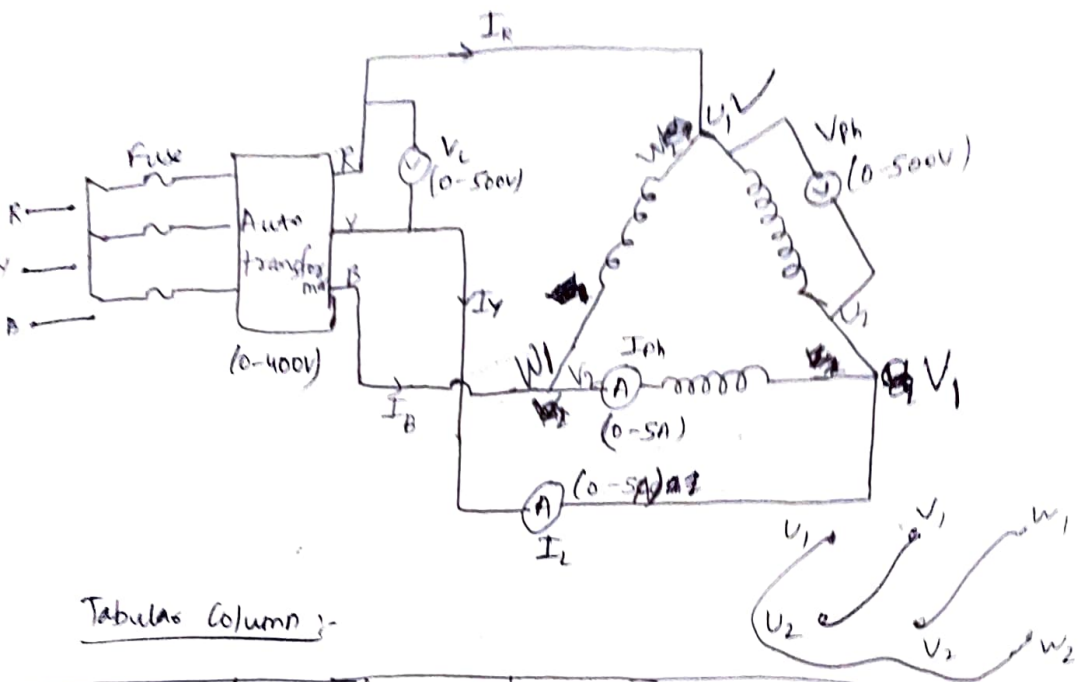 I_R
Fuse
R
Y
B
Auto
transfor
mer
(0-400V)
R
Y
B
V_L
(0-500V)
I_Y
I_B
U_1
V_ph
(0-500V)
W1
V_2
I_ph
(0-5A)
V_1
(0-5A)
I_L
U_1 V_1 W_1
U_2 V_2 W_2
Tabular Column :-